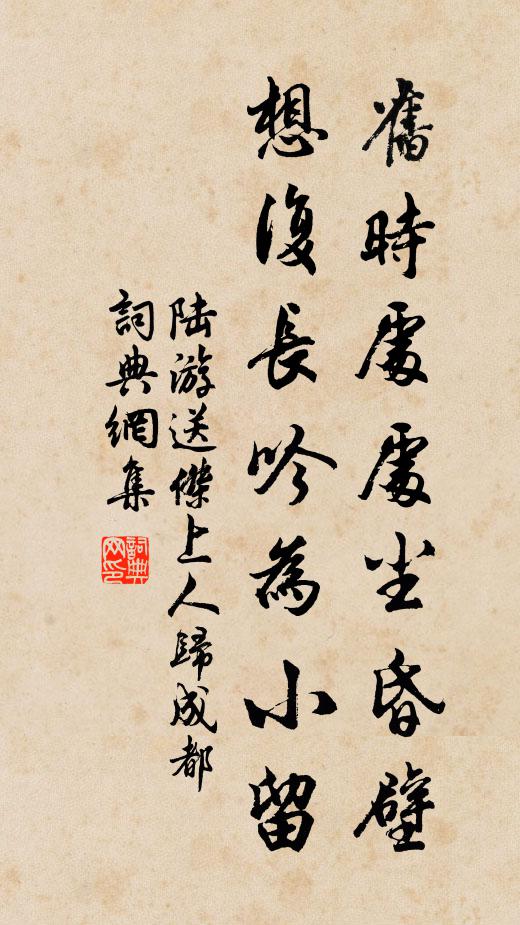 舊時處處塵昏壁
想復長吟為小留
陸游送傑上人歸成都
詞典網集
詞典網印